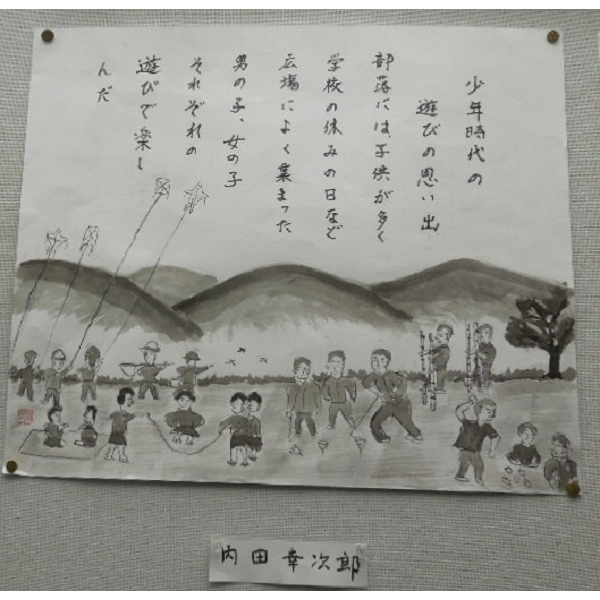 少年時代の
遊びの思い出
部落には、子供が多く
学校の休みの日など
広場によく集まった
男の子、女の子
それぞれの
遊びで楽し
んだ
内田幸次郎